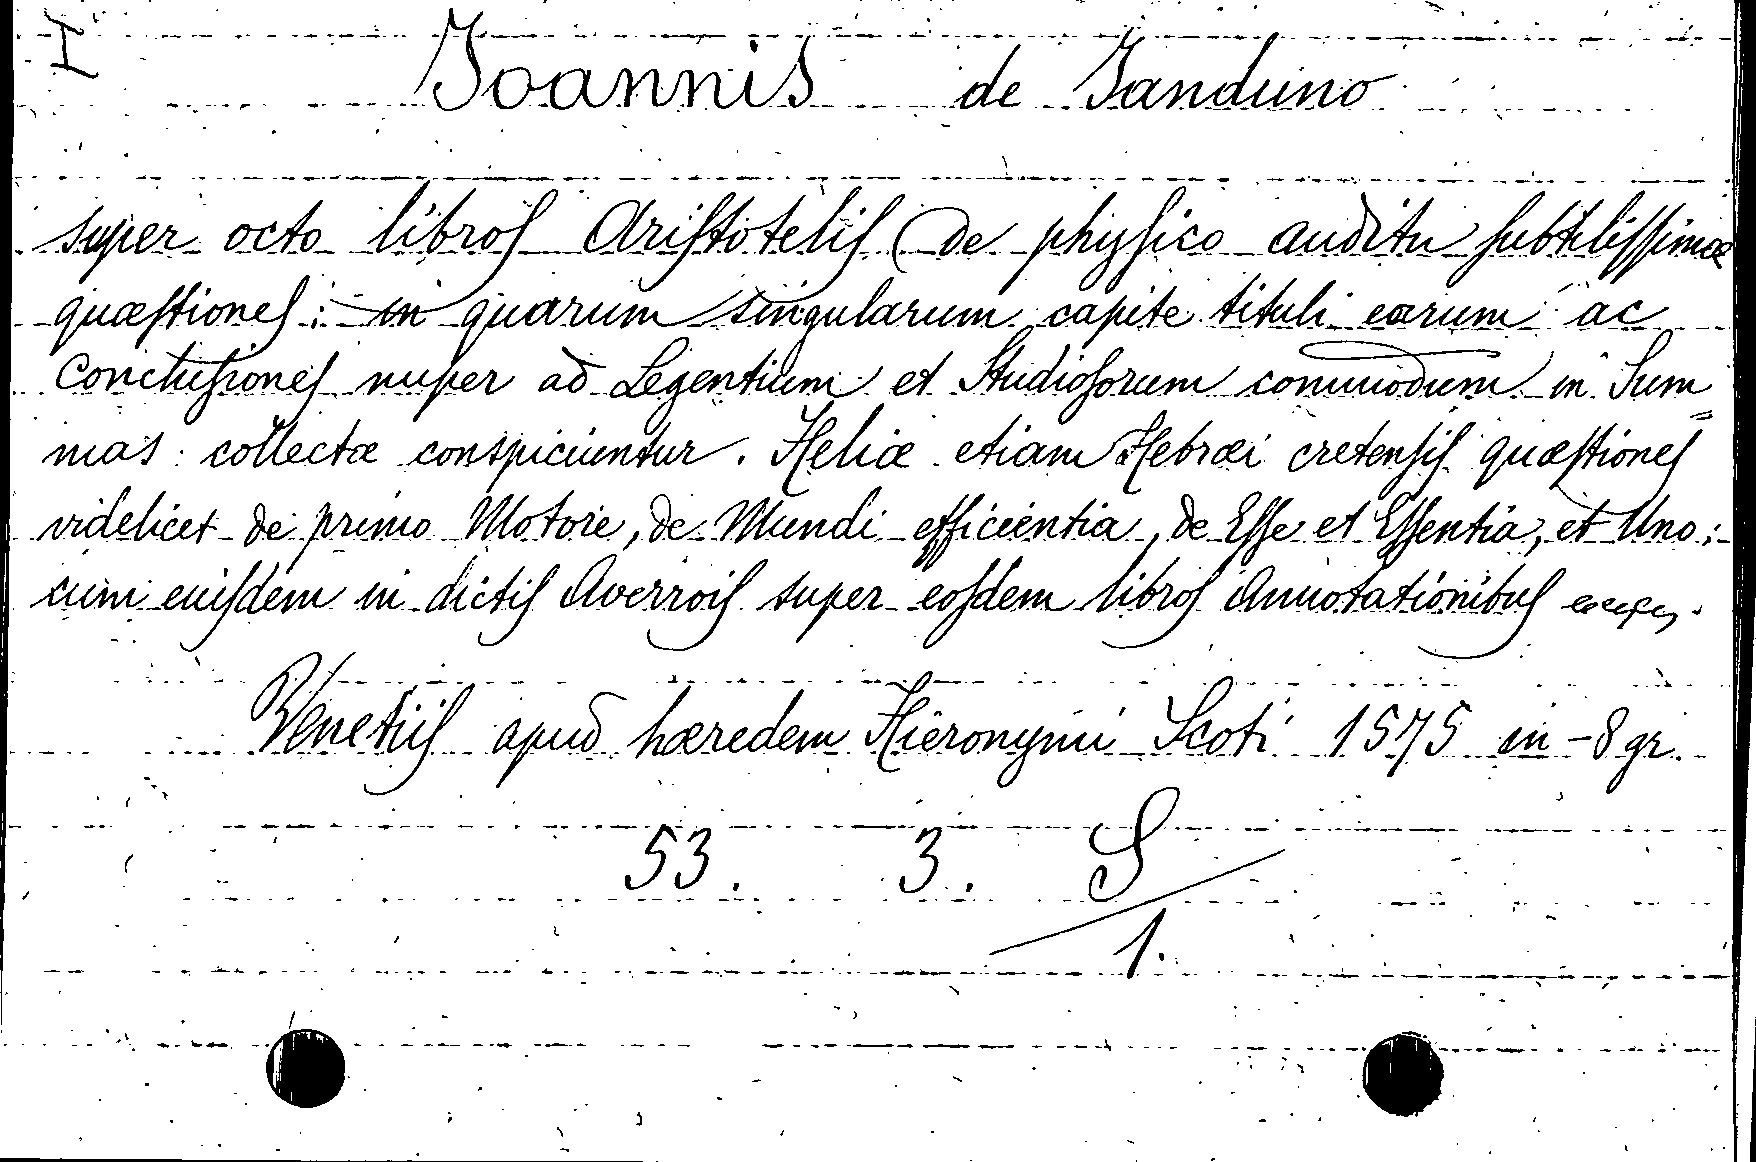 I
Joannis de Janduno
super octo libros Aristotelis de physico auditu subtilissimæ
quæstiones: in quarum singularum capite tituli earum ac
Conclusiones nuper ad Legentium et Studiosorum commodum in Sum
mas collectæ conspiciuntur. Heliæ etiam Hebræi cretensis quæstiones
videlicet de primo Motore, de Mundi efficientia, de Esse et Essentia, et Uno;
cum eiusdem in dictis Averrois super eosdem libros Annotationibus
Venetiis apud hæredem Hieronymi Scoti 1575 in-8 gr.
53. 3. S
1.